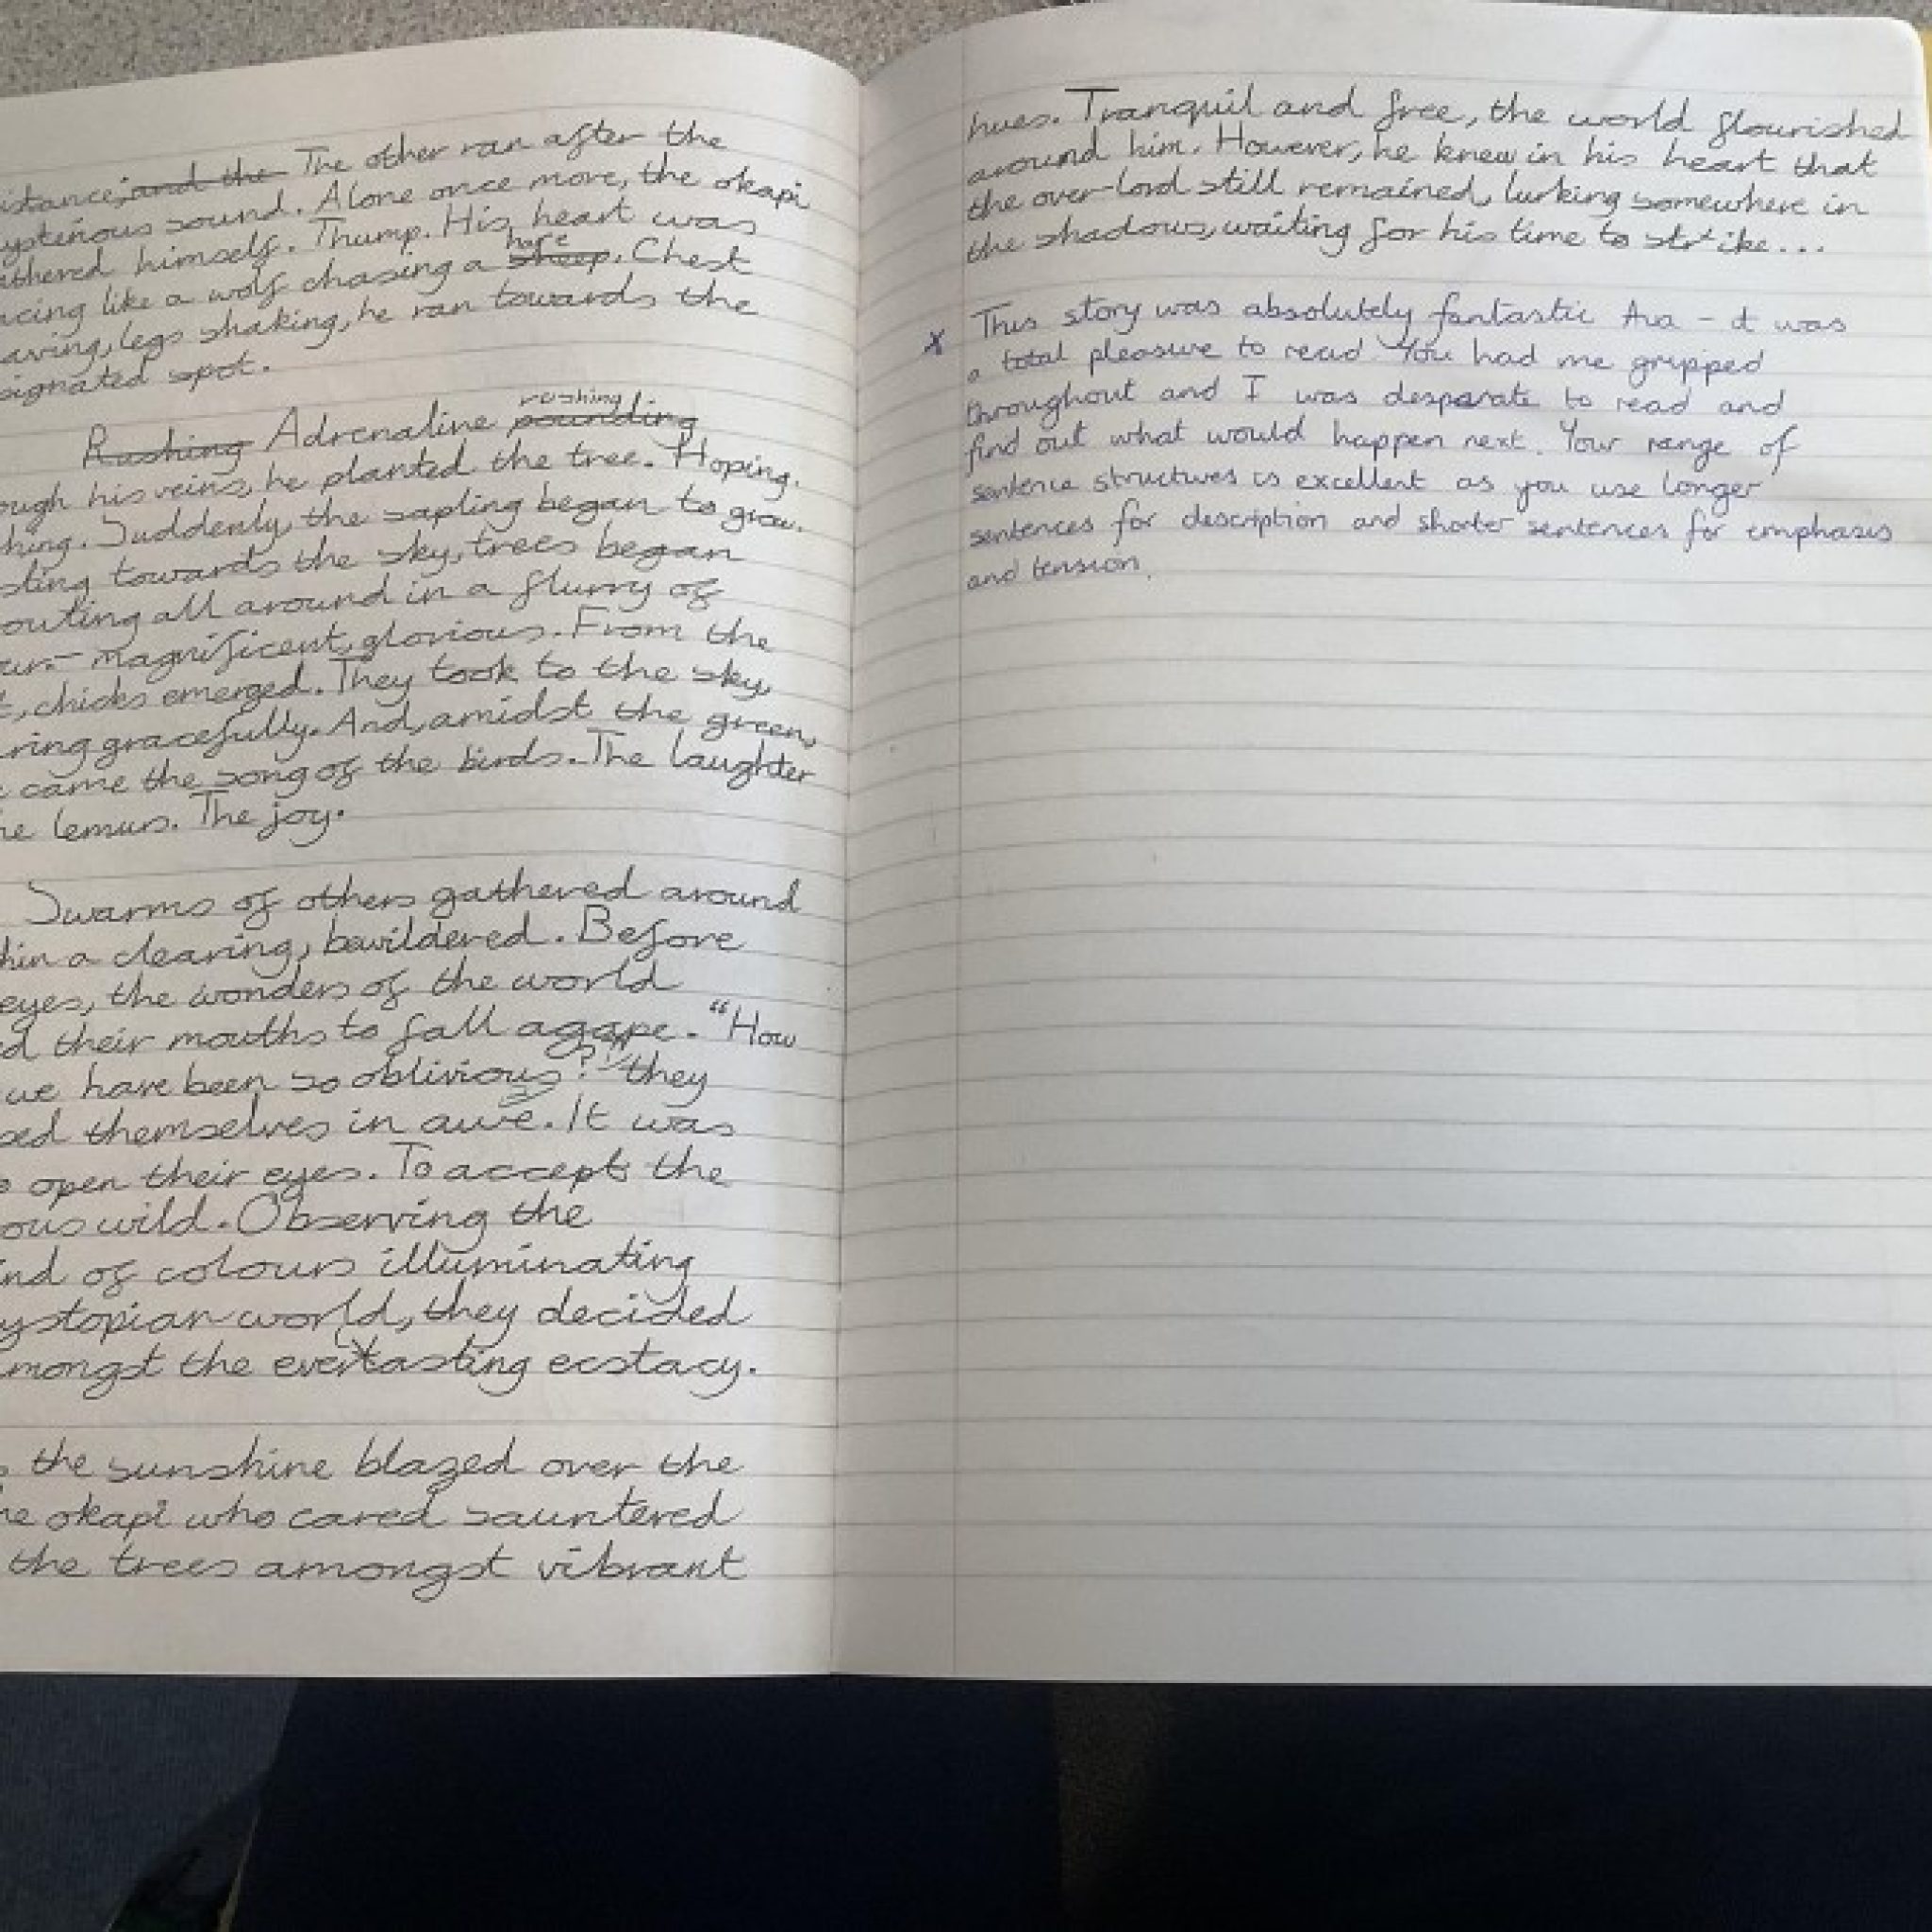 istance; and the The other ran after the
ysterious sound. Alone once more, the okapi
athered himself. Thump. His heart was
acing like a wolf chasing a sheep hare. Chest
eaving, legs shaking, he ran towards the
signated spot.
Rushing Adrenaline pounding rushing
ough his veins, he planted the tree. Hoping.
hing. Suddenly, the sapling began to grow.
sting towards the sky, trees began
outing all around in a flurry of
our - magnificent, glorious. From the
t, chicks emerged. They took to the sky,
ring gracefully. And, amidst the green,
e came the song of the birds. The laughter
he lemurs. The joy.
Swarms of others gathered around
hin a clearing, bewildered. Before
eyes, the wonders of the world
ed their mouths to fall agape. "How
we have been so oblivious?" they
sed themselves in awe. It was
o open their eyes. To accept the
ous wild. Observing the
ind of colours illuminating
ystopian world, they decided
mongst the everlasting ecstacy.
s the sunshine blazed over the
he okapi who cared sauntered
the trees amongst vibrant
hues. Tranquil and free, the world flourished
around him. However, he knew in his heart that
the over-lord still remained, lurking somewhere in
the shadows, waiting for his time to strike...
x This story was absolutely fantastic Ava - it was
a total pleasure to read. You had me gripped
throughout and I was desparate to read and
find out what would happen next. Your range of
sentence structures is excellent as you use longer
sentences for description and shorter sentences for emphasis
and tension.